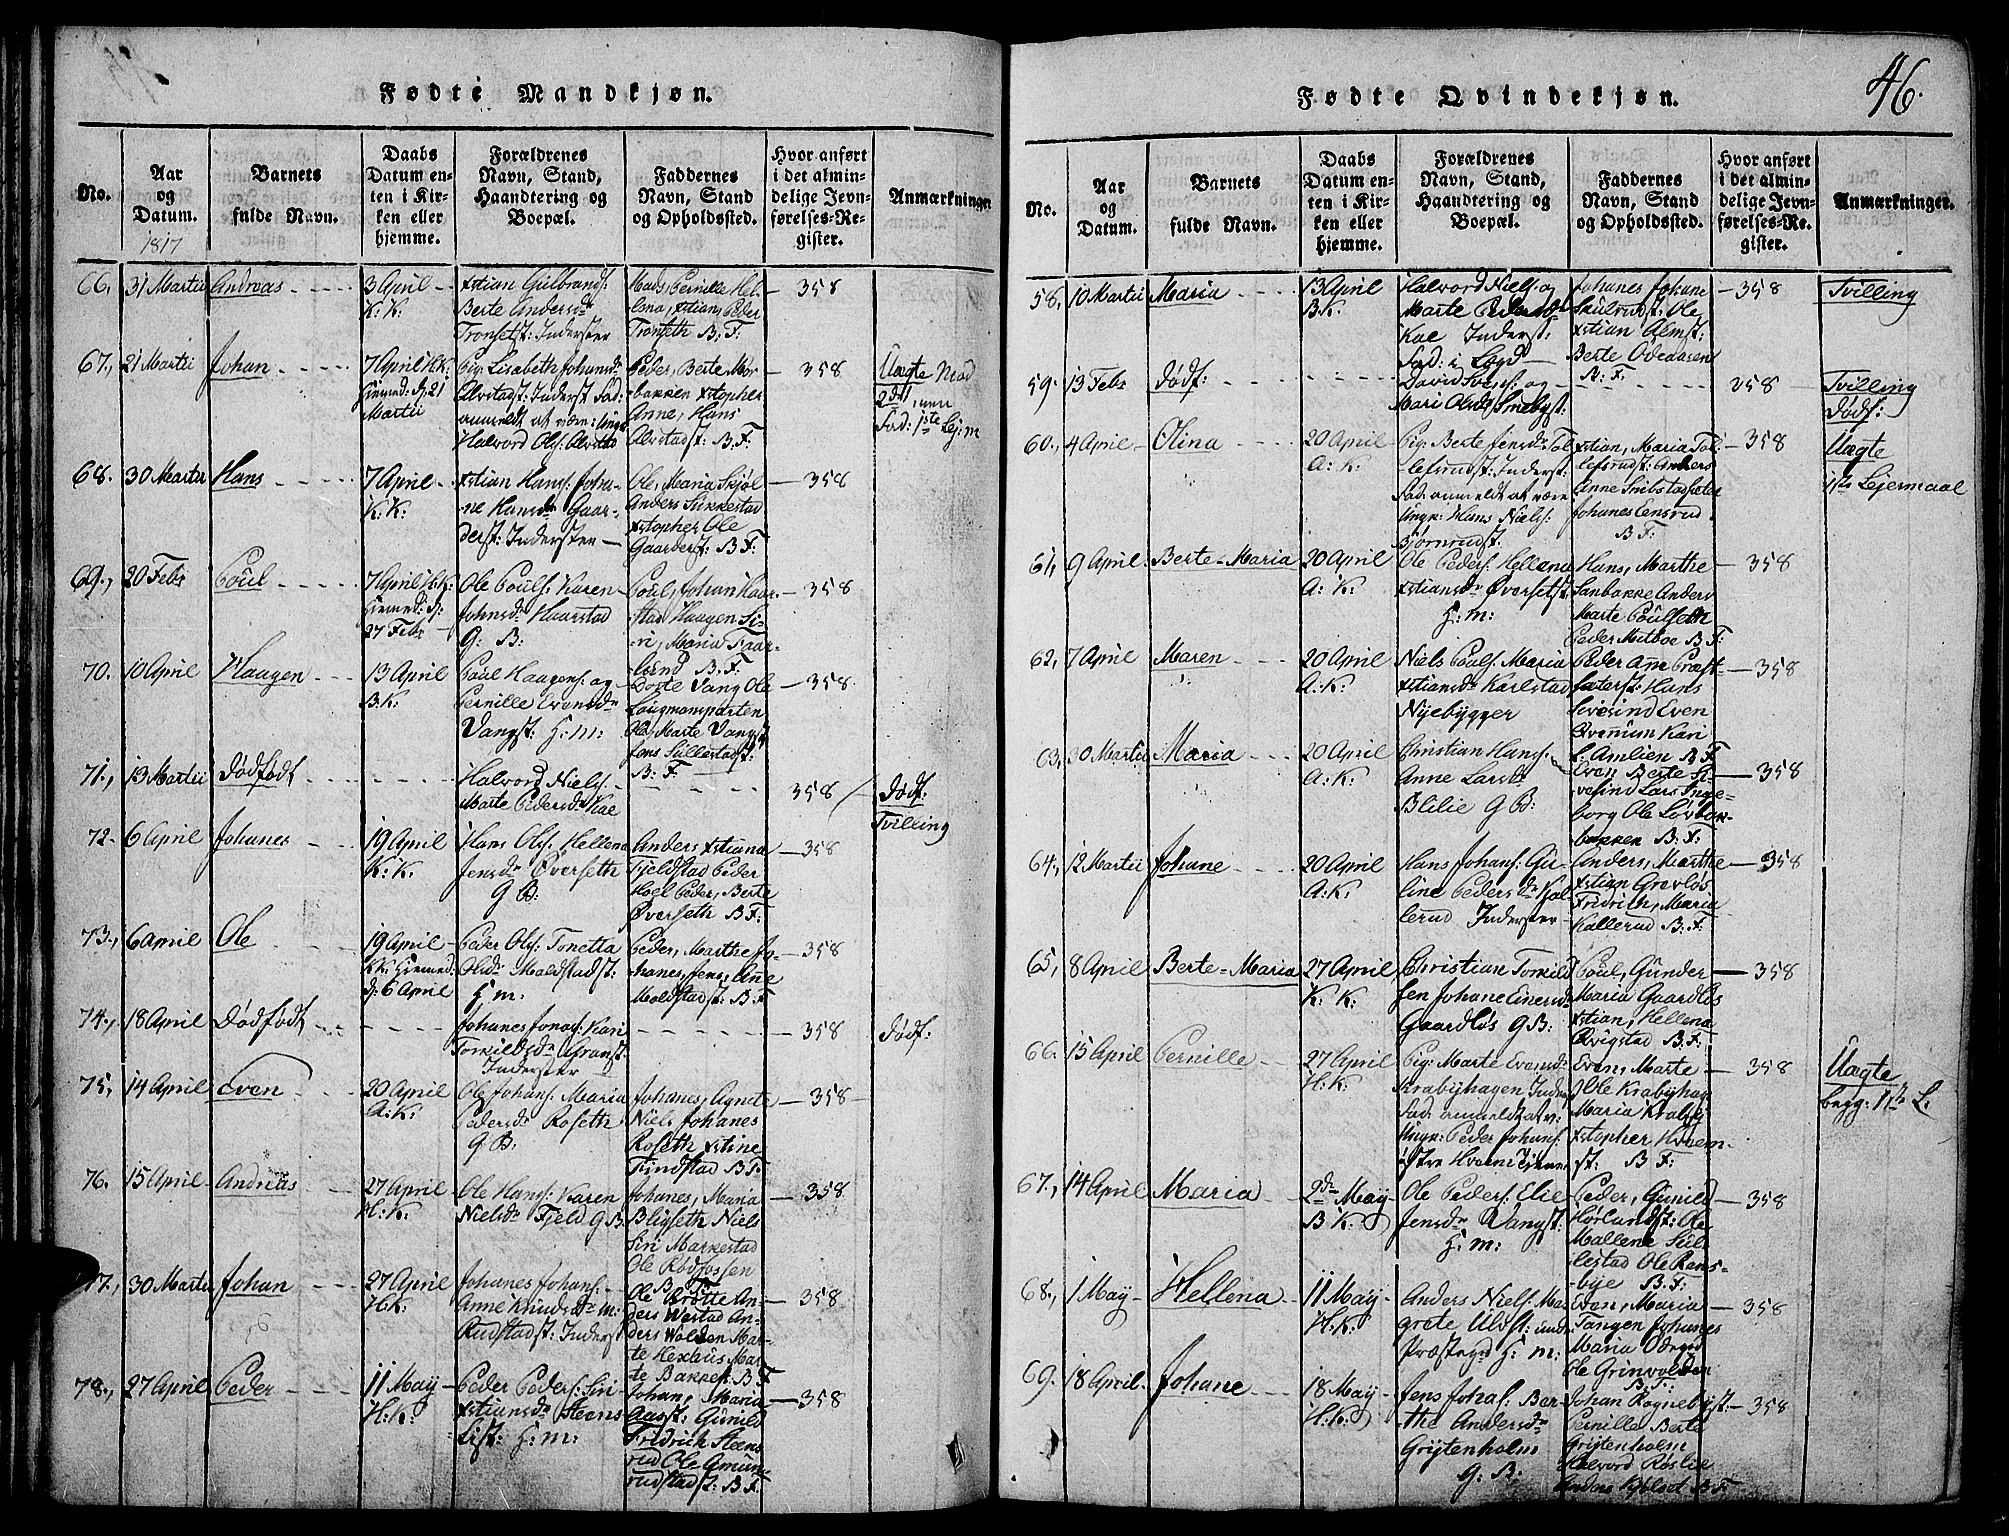 Fødte Mandkjøn.
No.
Aar
og
Datum.
1817
Barnets
fulde Navn.
Daabs
Datum en-
ten i Kir-
ken eller
hjemme.
Forældrenes
Navn, Stand,
Haandtering og
Boepæl.
Faddernes
Navn, Stand
og Opholdssted.
Hvor anført
i det almin-
delige Jevn-
førelses-Re-
gister.
Anmærkninger
66, 31 Martii Andreas
3 April
K: K:
Xstian Gulbrands:
Berte Andersdr
Tronsetst: Inderster
Mads Pernille Hel-
ena, Xstian, Peder
Tronseth B: F:
358
67, 21 Martii Johan
7 April K K:
hiemd: d: 21
Martii
Pig: Lisabeth Johansdr
Alvstadst: Inderst Fad:
anmeldt at være: Ungk:
Halvord Ols: Alvstad
Peder, Berte Mör-
bakken Xstopher
Anne, Hans
Alvstadst: B: F:
358
Uægte Mod
2det men
Fad: 1ste Lej: m
68. 30 Martii Hans
7 April
K: K:
Xstian Hans: Joha-
ne Hansdr Gaar-
derst: Inderster
Ole, Maria Skjöl
Anders Sukkestad
Xstopher Ole
Gaarderst: B F:
358
69, 20 Febr Poul
7 April K: K:
hiemd: d:
27 Febr
Ole Pouls: Karen
Johnsdr Haarstad
G: B:
Poul, Johan Haar-
stad Haagen Si-
ri, Maria Faar-
lund B: F:
358
70. 10 April Haagen
13 April
B: K:
Poul Haagens: og
Pernille Evensdr
Vangst: H: m:
Dorte Vang Ole
Laugmansparten
Ole, Marte Vangst
Jens Sullestadst:
B: F:
358
71, 13 Martii Dödfödt
Halvord Niels:
Marte Pedersdr Kae
358
Dödf:
Tvilling
72. 6 April Johanes
19 April
K: K:
Hans Ols: Hellena
Jensdr Överseth
G B:
Anders Xstiana
Fjeldstad Peder
Hoel Peder, Berte
Överseth B F:
358
73., 6 April Ole
19 April
K K: hiemed:
d: 6 April
Peder Ols: Tonetta
Olsdr Moldstadst:
H: m:
Peder, Marthe Jo-
hanes, Jens, Ane
Moldstadst: B: F
358
74., 18 April Dödfödt
Johanes Jonas: Kari
Tomildsdr Granst:
Inderster
358
Dödf:
75, 14 April Even
20 April
A: K:
Ole Johans: Maria
Pedersdr Roseth
G B:
Johanes, Agnete
Niels Johanes
Roseth Xstine
Findstad B F:
358
76. 15 April Andreas
27 April
H: K:
Ole Hans: Karen
Nielsdr Fjeld G B:
Johanes, Maria
Bligseth Niels
Siri Markestad
Ole Rödfossen
B: F:
358
77., 30 Martii Johan
27 April
H: K:
Johanes Johans:
Anne Knudsdr
Rudstadst: Inderst
Ole Brötte An-
ders Westad An-
ders Wolden Mar-
te Hexhus Mar-
te Bakken B F
358
78., 27 April Peder
11 May
H: K:
Peder Peders: Siri
Xstiansdr Steens
List: H: m:
Johan, Maria
Aasst: Gunild
Fridrich Steens
rud Ole Gmun-
rudstadst: B F
358
Fødte Qvindekjøn.
46.
No.
Aar
og
Datum.
Barnets
fulde Navn.
Daabs
Datum en-
ten i Kir-
ken eller
hjemme.
Forældrenes
Navn, Stand,
Haandtering og
Boepæl.
Faddernes
Navn, Stand
og Opholdssted.
Hvor anført
i det almin-
delige Jevn-
førelses-Re-
gister.
Anmærkninger.
58, 10 Martii Maria
13 April
B K:
Halvord Niels: og
Marte Pedersdr
Kae Inderst:
Fad: i Lægd
Johanes Johane
Skulrudst: Ole
Xstian Almst:
Berte Odeaasen
B: F:
358
Tvilling
59. 13 Febr Dödf:
David Svens: og
Mari Olsdr Smebyst:
358
Tvilling
Dödf:
60., 4 April Olina
20 April
A: K:
Pig: Berte Jensdr Tol-
lefsrudst: Inderst:
Fad: anmeldt at være
Ungk: Hans Niels:
Björnrudst:
Xstian, Maria Tol-
lefsrudst: Anders
Anne Smebstadsæter
Johanes Lensrud
B F:
358
Uægte
1ste Lejermaal
61, 9 April Berte-Maria
20 April
A: K:
Ole Peders: Hellena
Xstiansdr Översetst
H: m:
Hans, Marthe
Sanbakke Anders
Marte Poulseth
Peder Mitboe B F:
358
62, 7 April Maren
20 April
A: K:
Niels Pouls: Maria
Xstiansdr Karlstad
Nyebygger
Peder Ane Præst-
sæterst: Hans
Sivesind Even
Qvenum Kari
L. Amlien B F
358
63, 30 Martii Maria
20 April
A: K:
Christian Hans:
Anne Larsdr
Blilie G B:
Even Berte Si-
vesind Lars Inge-
borg Ole Lövbor-
bakken B: F:
358
64, 12 Martii Johane
20 April
A: K:
Hans Johans: Gu-
line Pedersdr Kal-
lerud Inderster
Anders, Marthe
Xstian Grevlös
Fridrich, Maria
Kallerud B: F:
358
65, 8 April Berte-Maria
27 April
K: K:
Christian Tomild
sen Johane Einersdr
Gaardlös G B:
Poul, Gunder
Maria Gaardlös
Xstian, Hellena
Qvigstad B: F:
358
66. 15 April Pernille
27 April
H: K:
Pig: Marte Evensdr
Krabyhagen Inders
Fad: anmeldt at v:
Ungk: Peder Johans:
östre Hveem
Even, Marte
Ole Krabyhag
Maria Kraby
Xstopher Hveem-
st: B F:
358
Uægte
begg: 1ste L.
67., 14 April Maria
2de May
B K:
Ole Peders: Elie
Jensdr Vangst:
H: m:
Peder, Gunild
Hörlundst: Ole
Mallene Sul-
lestad Ole Rens-
bye B: F:
358
68., 1 May Hellena
11 May
H: K:
Anders Niels: Mar
grete Ulvst: under
Præstegd H: m:
Even, Maria
Tangen Johanes
Maria Odegrd
Ole Grinvolden
B: F:
358
69. 18 April Johane
18 May
H: K:
Jens Johas: Ber-
the Andersdr
Grijtenholm
G: B:
Johan Rognebyst:
Pernille Berte
Grijtenholm
Halvord Röslie
Anders B F
358